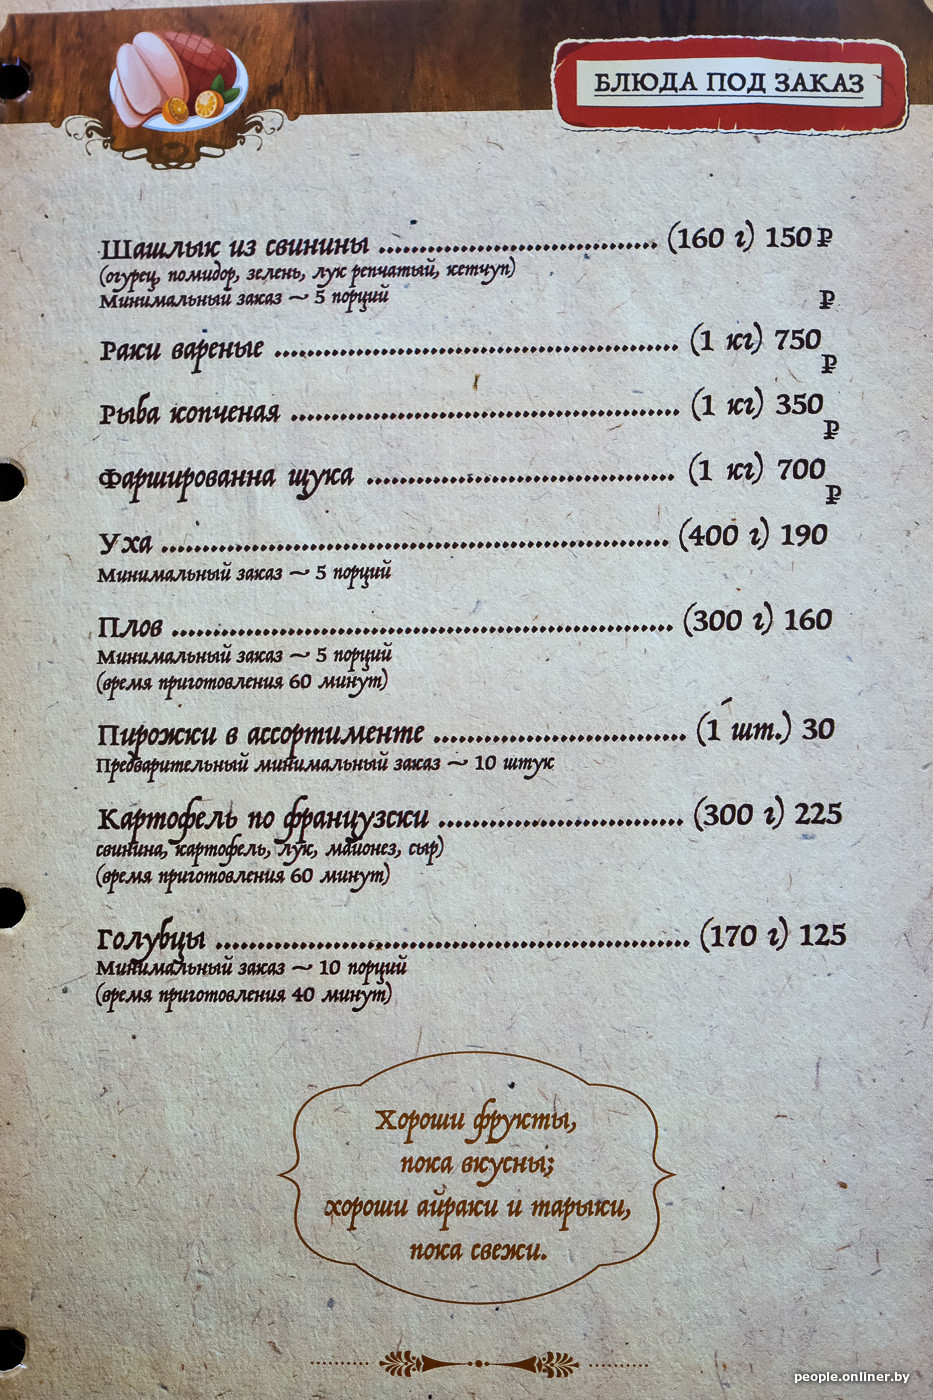 БЛЮДА ПОД ЗАКАЗ
Шашлык из свинины ........................................ (160 г) 150 ₽
(огурец, помидор, зелень, лук репчатый, кетчуп)
Минимальный заказ ~ 5 порций
₽
Раки вареные ........................................ (1 кг) 750
₽
Рыба копченая ........................................ (1 кг) 350
₽
Фаршированна щука ........................................ (1 кг) 700
₽
Уха ........................................ (400 г) 190
Минимальный заказ ~ 5 порций
Плов ........................................ (300 г) 160
Минимальный заказ ~ 5 порций
(время приготовления 60 минут)
Пирожки в ассортименте ........................................ (1 шт.) 30
Предварительный минимальный заказ ~ 10 штук
Картофель по французски ........................................ (300 г) 225
свинина, картофель, лук, майонез, сыр)
(время приготовления 60 минут)
Голубцы ........................................ (170 г) 125
Минимальный заказ ~ 10 порций
(время приготовления 40 минут)
Хороши фрукты,
пока вкусны;
хороши айраки и тарыки,
пока свежи.
people.onliner.by